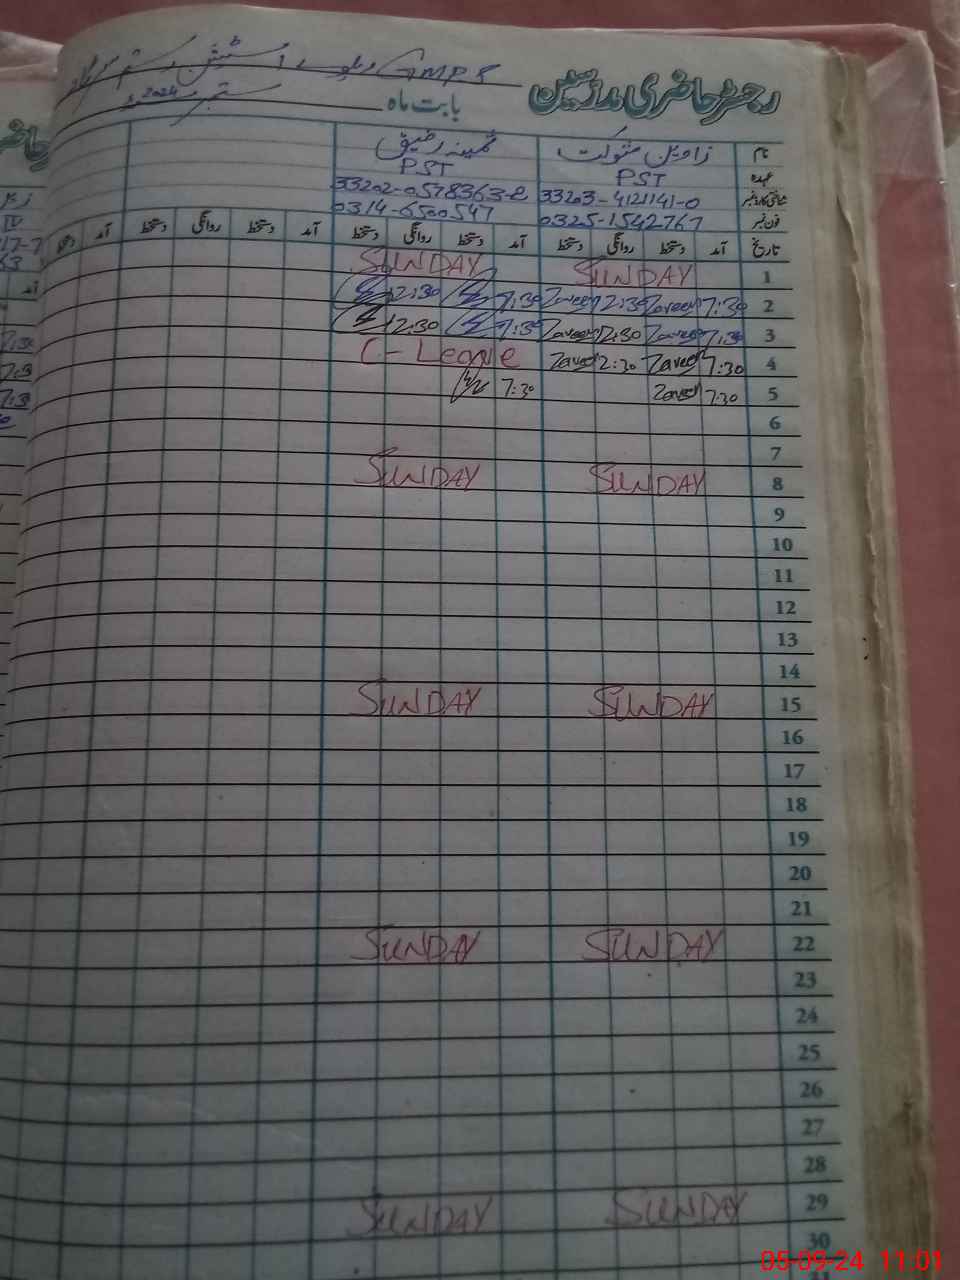 رجسٹر حاضری مدرسین
GMPS ریلوے اسٹیشن
بابت ماہ ستمبر 2024ء
نام زامین شوکت ثمینہ رفیق
عہدہ PST PST
شناختی کارڈ نمبر 33203-4121141-0 33202-0578363-2
فون نمبر 0325-1542767 0314-6500547
تاریخ آمد دستخط روانگی دستخط آمد دستخط روانگی دستخط آمد دستخط روانگی دستخط آمد
1 SUNDAY SUNDAY
2 7:30 Zaveen 2:30 Zaveen 7:30 2:30
3 7:30 Zaveen 2:30 Zaveen 7:30 2:30
4 7:30 Zaveen 2:30 Zaveen C-Leave
5 7:30 Zaveen 7:30
6
7
8 SUNDAY SUNDAY
9
10
11
12
13
14
15 SUNDAY SUNDAY
16
17
18
19
20
21
22 SUNDAY SUNDAY
23
24
25
26
27
28
29 SUNDAY SUNDAY
30
05-09-24 11:01